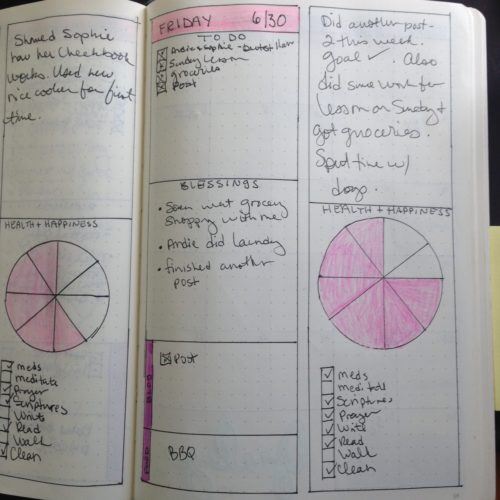 Showed Sophie
how her Checkbook
works. Used new
rice cooker for first
time.
HEALTH + HAPPINESS
meds
meditate
Prayer
Scriptures
Write
Read
Walk
Clean
FRIDAY 6/30
TO DO
Andie + Sophie -
Sunday Lesson
groceries
Post
BLESSINGS
• Sean went grocery
shopping with me
• Andie did laundry
• finished another
post
BLOG
Post
BBQ
Did another post -
2 this week.
Goal ✓. Also
did some work for
lesson on Sunday +
got groceries.
Spent time w/
dogs.
HEALTH + HAPPINESS
meds
meditate
Scriptures
Prayer
Write
Read
Walk
Clean